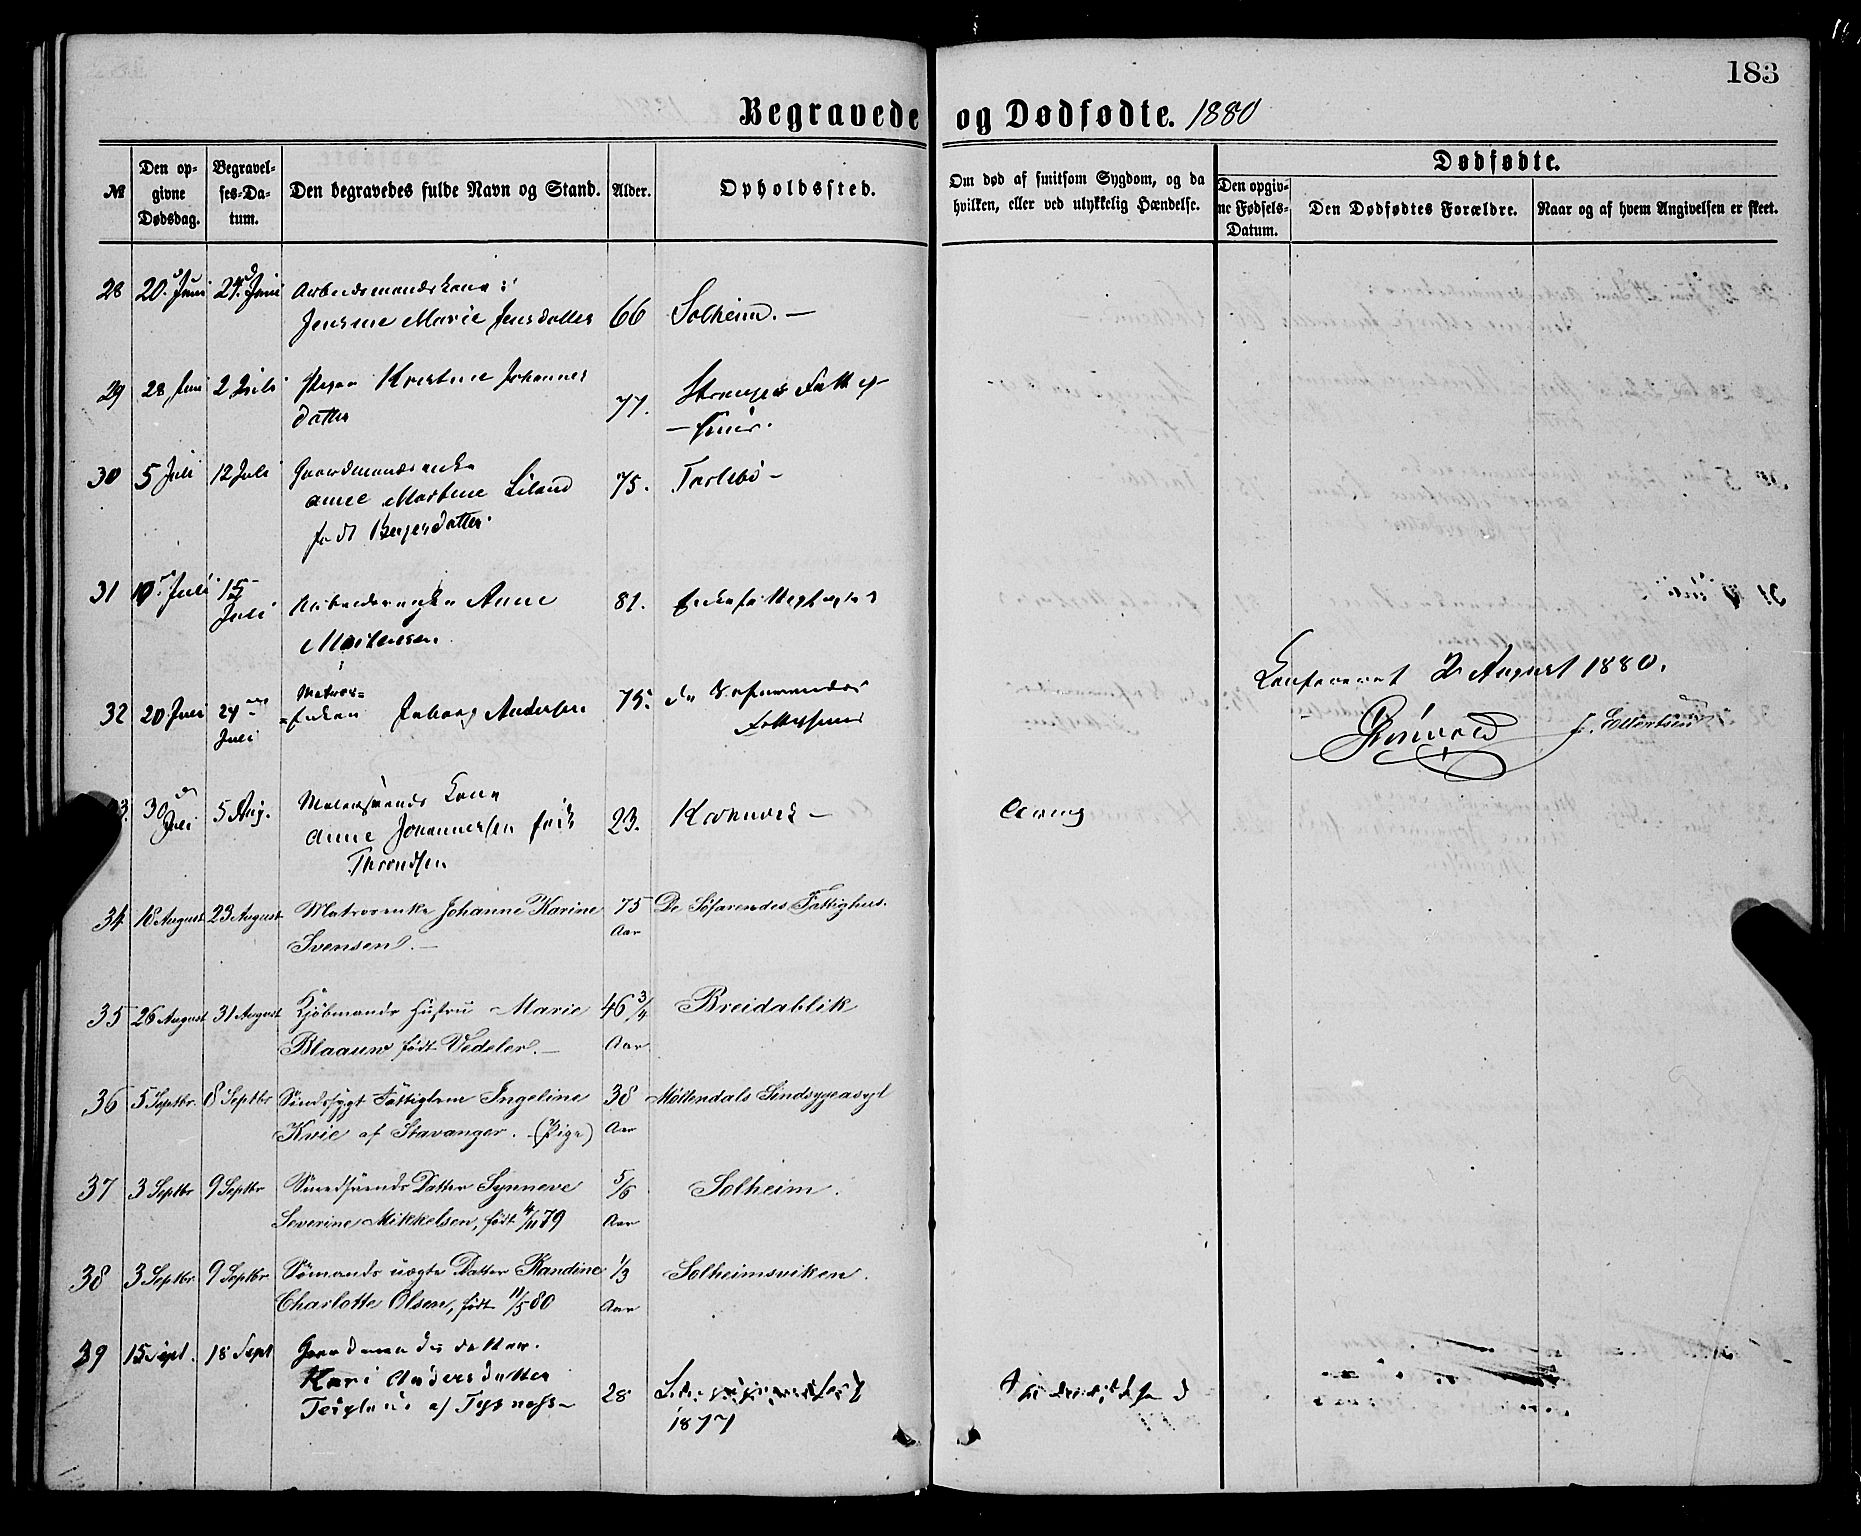 183
Begravede og Dødfødte. 1880
№
Den opgivne Dødsdag.
Begravelses-Datum.
Den begravedes fulde Navn og Stand.
Alder.
Opholdssted.
Om død af smitsom Sygdom, og da hvilken, eller ved ulykkelig Hændelse.
Dødfødte.
Den opgivne Fødsels-Datum.
Den Dødfødtes Forældre.
Naar og af hvem Angivelsen er skeet.
28 20. Juni 24. Juni Arbeidsmandskone:
Jensine Marie Jensdatter 66 Solheim. —
29 28 Juni 2 Juli Pigen Kristine Johannes
datter 77. Stranges Fattig-
— huus.
30 5 Juli 12 Juli Gaardmandsenke
Anne Martine Liland 75. Tarlebö —
født Bergesdatter.
31 10. Juli 15 Juli Arbeidsenke Anne 81.
Mortensen.
32 20 Juli 24 Juli Matros-
enken Inborg Andersen 75. de Søfarendes
Fattighuus
Konfereret 2 August 1880.
Grönvold J. Ellertsen
30 Juli 5 Aug. Kone
Anne Johannessen født 23. Kaknæs —
Throndsen
34 18 August 23 August Matrosenke Johanne Karine 75 Aar De Söfarendes Fattighus.
Svensen. —
35 26 August 31 August Kjöbmands Hustru Marie 46 3/4 Aar Breidablik
Blaauw født Vedeler. —
36 5 Septbr. 8 Septbr Sindssygt Fattiglem Ingeline 38 Aar Møllendals Sindsygeasyl
Kvie af Stavanger. (Pige)
37 3 Septbr 9 Septbr Smedsvends Datter Synneve 5/6 Aar Solheim.
Severine Mikkelsen, født 4/11 79
38 3 Septbr. 9 Septbr Sömands uægte Datter Randine 1/3 Aar Solheimsviken.
Charlotte Olsen, født 11/5 80
39 15 Sept. 18 Sept Gaardmandsdatter.
Kari Andersdatter 28
af Tysnæs —
1877